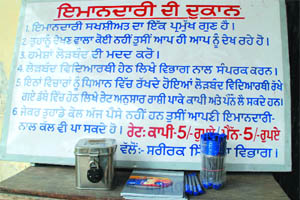 ਇਮਾਨਦਾਰੀ ਦੀ ਦੁਕਾਨ
1. ਇਮਾਨਦਾਰੀ ਸਖਸ਼ੀਅਤ ਦਾ ਇੱਕ ਪ੍ਰਮੁੱਖ ਗੁਣ ਹੈ।
2. ਤੁਹਾਨੂੰ ਦੇਖਣ ਵਾਲਾ ਕੋਈ ਨਹੀਂ ਤੁਸੀਂ ਆਪ ਹੀ ਆਪ ਨੂੰ ਦੇਖ ਰਹੇ ਹੋ।
3. ਹਮੇਸ਼ਾਂ ਲੋੜਬੰਦ ਦੀ ਮਦਦ ਕਰੋ।
4. ਲੋੜਬੰਦ ਵਿਦਿਆਰਥੀ ਹੇਠ ਲਿਖੇ ਵਿਭਾਗ ਨਾਲ ਸੰਪਰਕ ਕਰਨ।
5. ਇਨਾਂ ਵਿਚਾਰਾਂ ਨੂੰ ਧਿਆਨ ਵਿੱਚ ਰੱਖਦੇ ਹੋਇਆਂ ਲੋੜਬੰਦ ਵਿਦਿਆਰਥੀ ਰੱਖੇ
ਗਏ ਡੱਬੇ ਵਿੱਚ ਹੇਠ ਲਿਖੇ ਰੇਟ ਅਨੁਸਾਰ ਰਾਸ਼ੀ ਪਾਕੇ ਕਾਪੀ ਅਤੇ ਪੈੱਨ ਲੈ ਸਕਦੇ ਹਨ।
6. ਜੇਕਰ ਤੁਹਾਡੇ ਕੋਲ ਅੱਜ ਪੈਸੇ ਨਹੀਂ ਹਨ ਤੁਸੀਂ ਆਪਣੀ ਇਮਾਨਦਾਰੀ
ਨਾਲ ਕੱਲ ਵੀ ਪਾ ਸਕਦੇ ਹੋ। ਰੇਟ: ਕਾਪੀ-5/-ਰੁਪਏ/ਪੈੱਨ-5/-ਰੁਪਏ
ਵੱਲੋਂ:- ਸਰੀਰਕ ਵਿਭਾਗ।